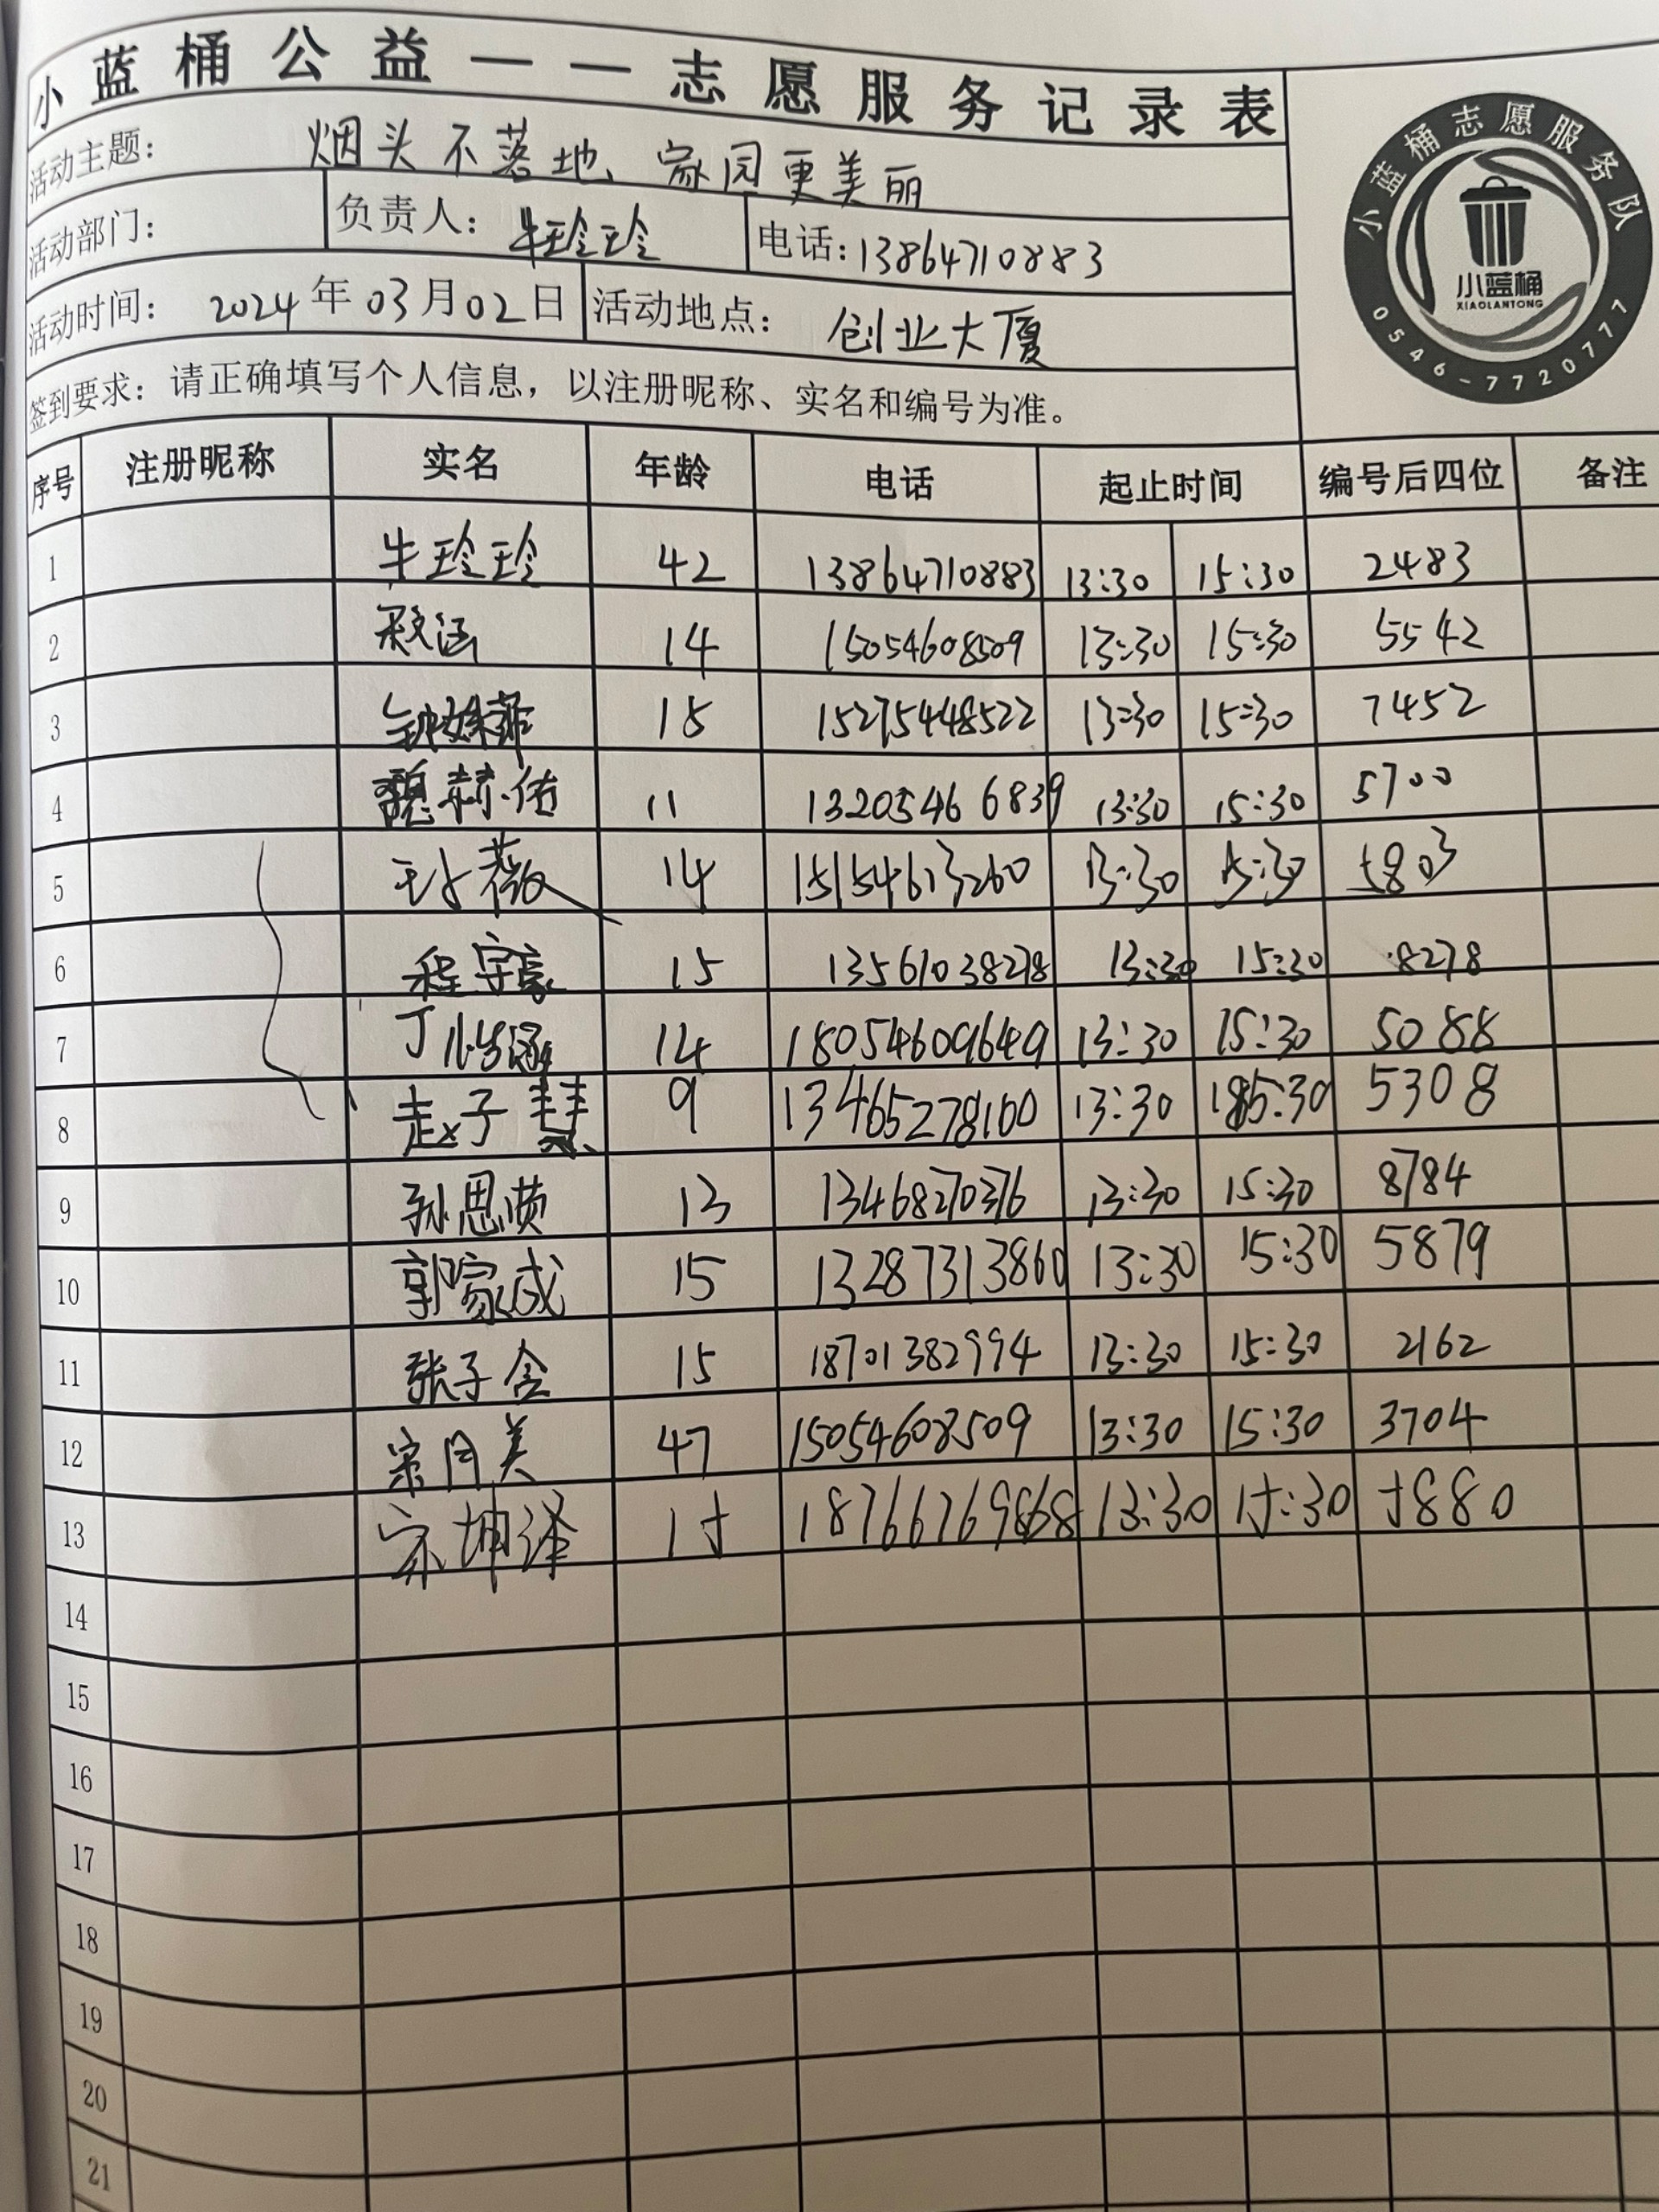 小蓝桶公益——志愿服务记录表
活动主题： 烟头不落地、家园更美丽
活动部门： 负责人：牛玲玲 电话：13864710883
活动时间： 2024年03月02日 活动地点： 创业大厦
签到要求：请正确填写个人信息，以注册昵称、实名和编号为准。
小蓝桶志愿服务队
小蓝桶
XIAOLANTONG
0546-7720777
序号 注册昵称 实名 年龄 电话 起止时间 编号后四位 备注
1 牛玲玲 42 13864710883 13:30 15:30 2483
2 14 15054608509 13:30 15:30 5542
3 15 15275448522 13:30 15:30 7452
4 魏赫佑 11 13205466839 13:30 15:30 5700
5 王少薇 14 15154613260 13:30 15:30 5803
6 程宇豪 15 13561038278 13:30 15:30 8278
7 丁怡涵 14 18054609649 13:30 15:30 5088
8 赵子慧 9 13465278160 13:30 15:30 5308
9 孙思 13 13468270376 13:30 15:30 8784
10 郭家成 15 13287313860 13:30 15:30 5879
11 张子含 15 18701382994 13:30 15:30 2162
12 宗月美 47 15054608509 13:30 15:30 3704
13 宋坤泽 15 18766769868 13:30 15:30 5880
14
15
16
17
18
19
20
21